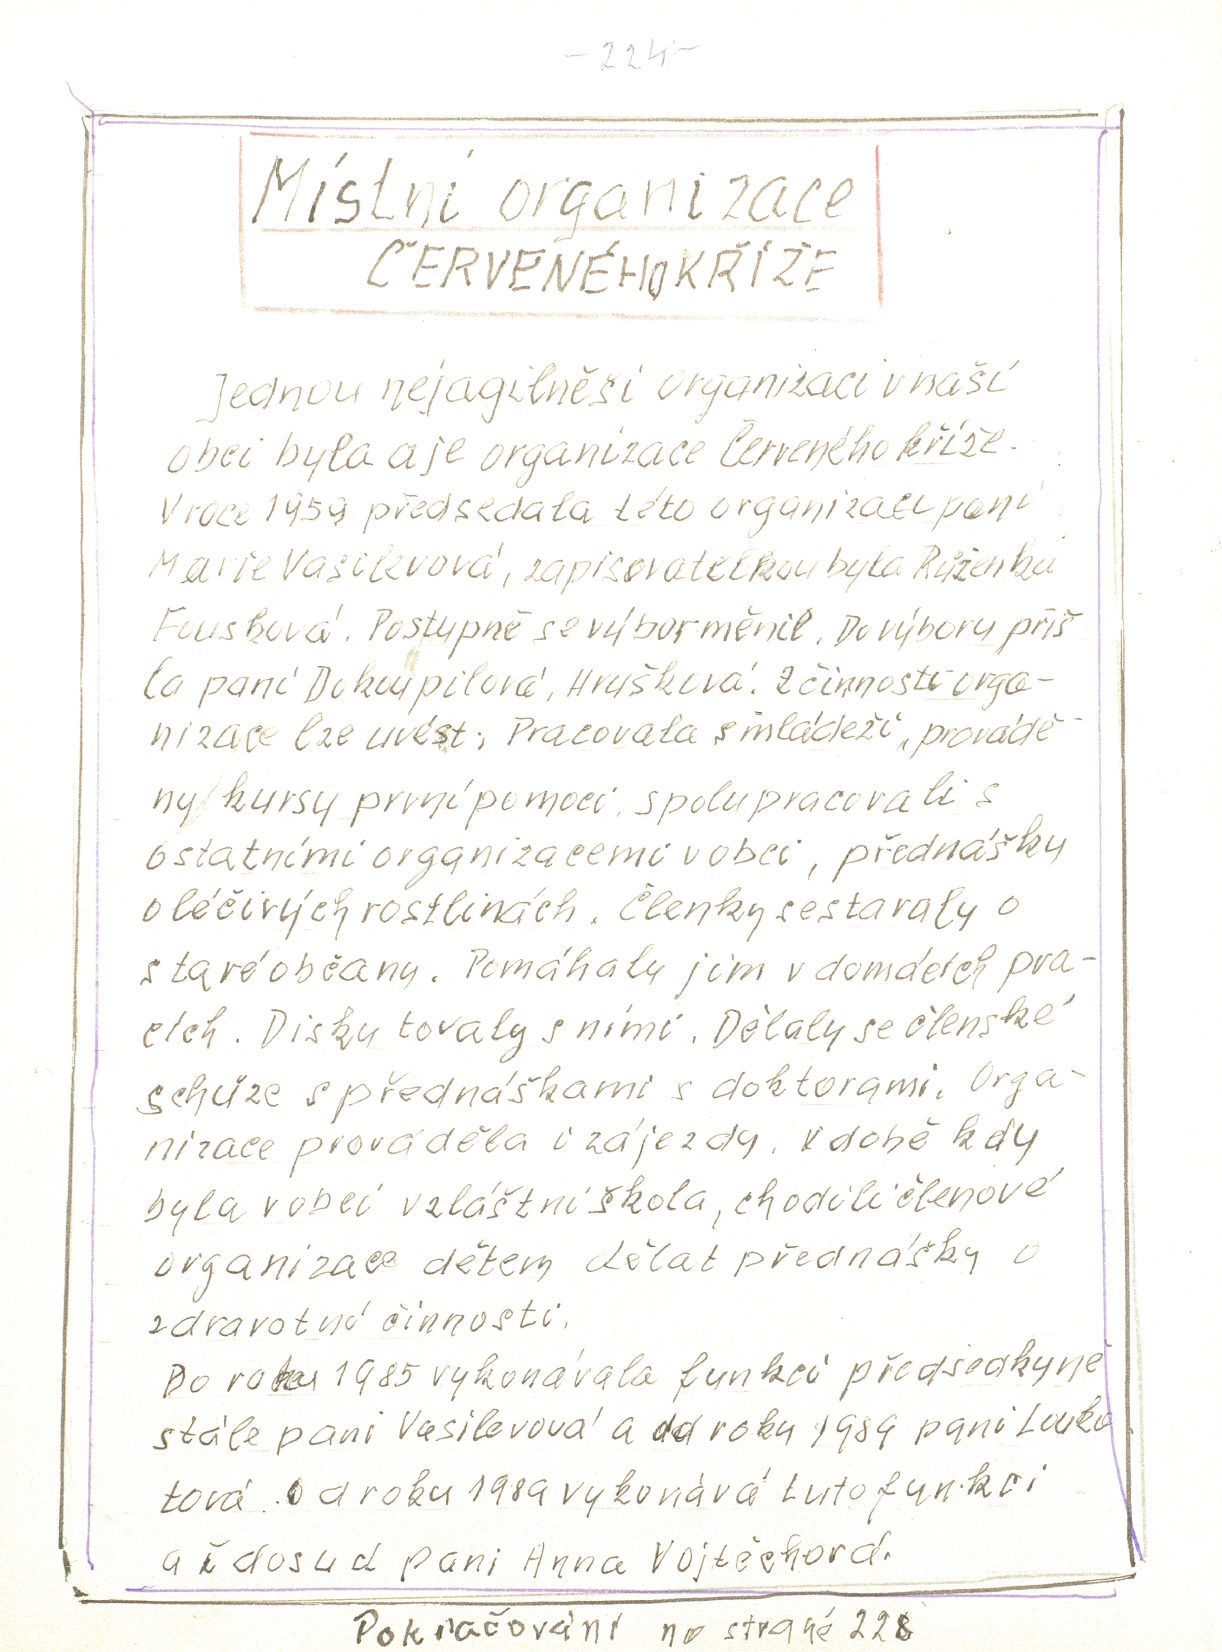 - 224 -
Místní organizace
ČERVENÉHO KŘÍŽE
Jednou nejagilněší organizaci v naší
obci byla a je organizace Červeného kříže.
V roce 1959 předsedala této organizaci paní
Marie Vasilevová, zapisovatelkou byla Růženka
Fousková. Postupně se výbor měnil. Do výboru přiš
la paní Dokoupilová, Hrušková. Z činnosti orga-
nizace lze uvést: Pracovala s mládeží, provádě-
ny kursy první pomoci, spolupracovali s
ostatními organizacemi v obci, přednášky
o léčivých rostlinách. Členky se staraly o
staré občany. Pomáhaly jim v domácích pra-
cích. Diskutovaly s nimi. Dělaly se členské
schůze s přednáškami s doktorami. Orga-
nizace prováděla i zájezdy. V době kdy
byla v obci vzláštní škola, chodili členové
organizace dětem dělat přednášky o
zdravotní činnosti.
Do roku 1985 vykonávala funkci předsedkyně
stále paní Vasilevová a od roku 1989 paní Louko
tová. Od roku 1989 vykonává tuto funkci
až dosud paní Anna Vojtěchová.
Pokračování na straně 228